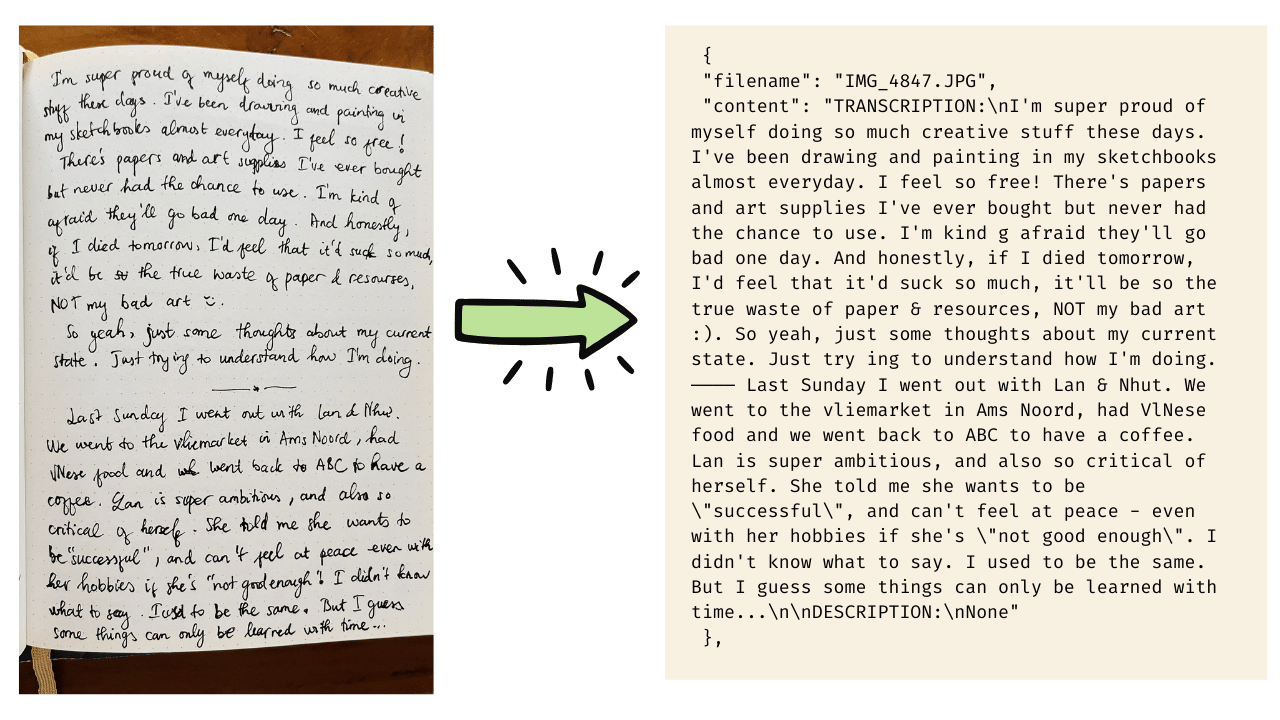 I'm super proud of myself doing so much creative
stuff these days. I've been drawing and painting in
my sketchbooks almost everyday. I feel so free!
There's papers and art supplies I've ever bought
but never had the chance to use. I'm kind of
afraid they'll go bad one day. And honestly,
if I died tomorrow, I'd feel that it'd suck so much,
it'd be so the true waste of paper & resourses,
NOT my bad art :).
So yeah, just some thoughts about my current
state. Just trying to understand how I'm doing.
Last Sunday I went out with Lan & Nhu.
We went to the vliemarket in Ams Noord, had
VNese food and went back to ABC to have a
coffee. Lan is super ambitious, and also so
critical of herself. She told me she wants to
be "successful", and can't feel at peace even with
her hobbies if she's "not good enough"! I didn't know
what to say. I used to be the same. But I guess
some things can only be learned with time...
{
"filename": "IMG_4847.JPG",
"content": "TRANSCRIPTION:\nI'm super proud of
myself doing so much creative stuff these days.
I've been drawing and painting in my sketchbooks
almost everyday. I feel so free! There's papers
and art supplies I've ever bought but never had
the chance to use. I'm kind g afraid they'll go
bad one day. And honestly, if I died tomorrow,
I'd feel that it'd suck so much, it'll be so the
true waste of paper & resources, NOT my bad art
:). So yeah, just some thoughts about my current
state. Just try ing to understand how I'm doing.
──── Last Sunday I went out with Lan & Nhut. We
went to the vliemarket in Ams Noord, had VlNese
food and we went back to ABC to have a coffee.
Lan is super ambitious, and also so critical of
herself. She told me she wants to be
\"successful\", and can't feel at peace - even
with her hobbies if she's \"not good enough\". I
didn't know what to say. I used to be the same.
But I guess some things can only be learned with
time...\n\nDESCRIPTION:\nNone"
},